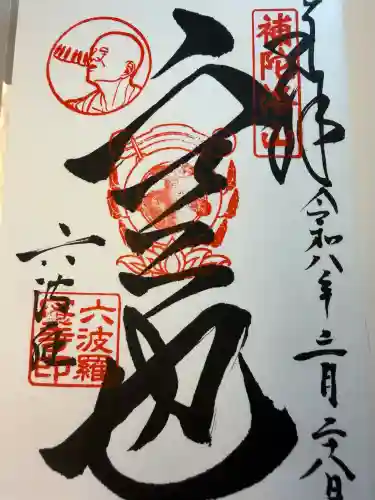 奉拝
補陀洛山
令和八年三月二八日
六波羅
六波羅蜜寺印